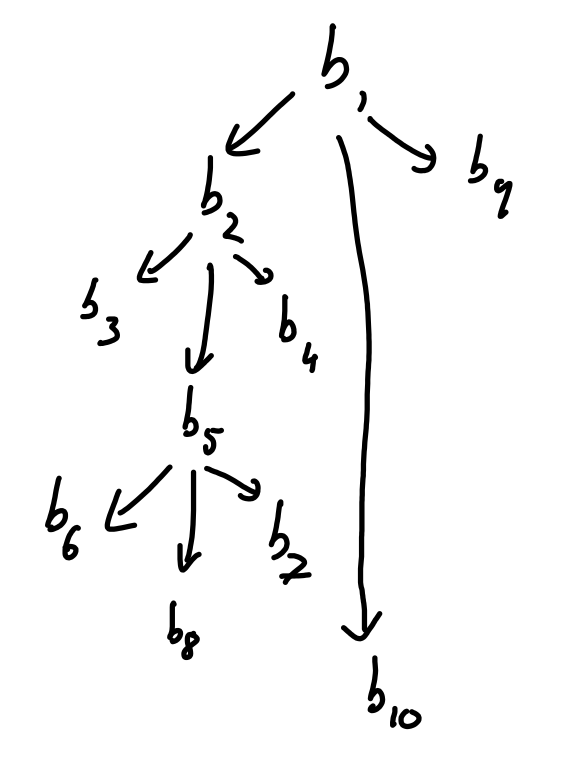 b1
b9
b2
b3
b4
b5
b6
b7
b8
b10